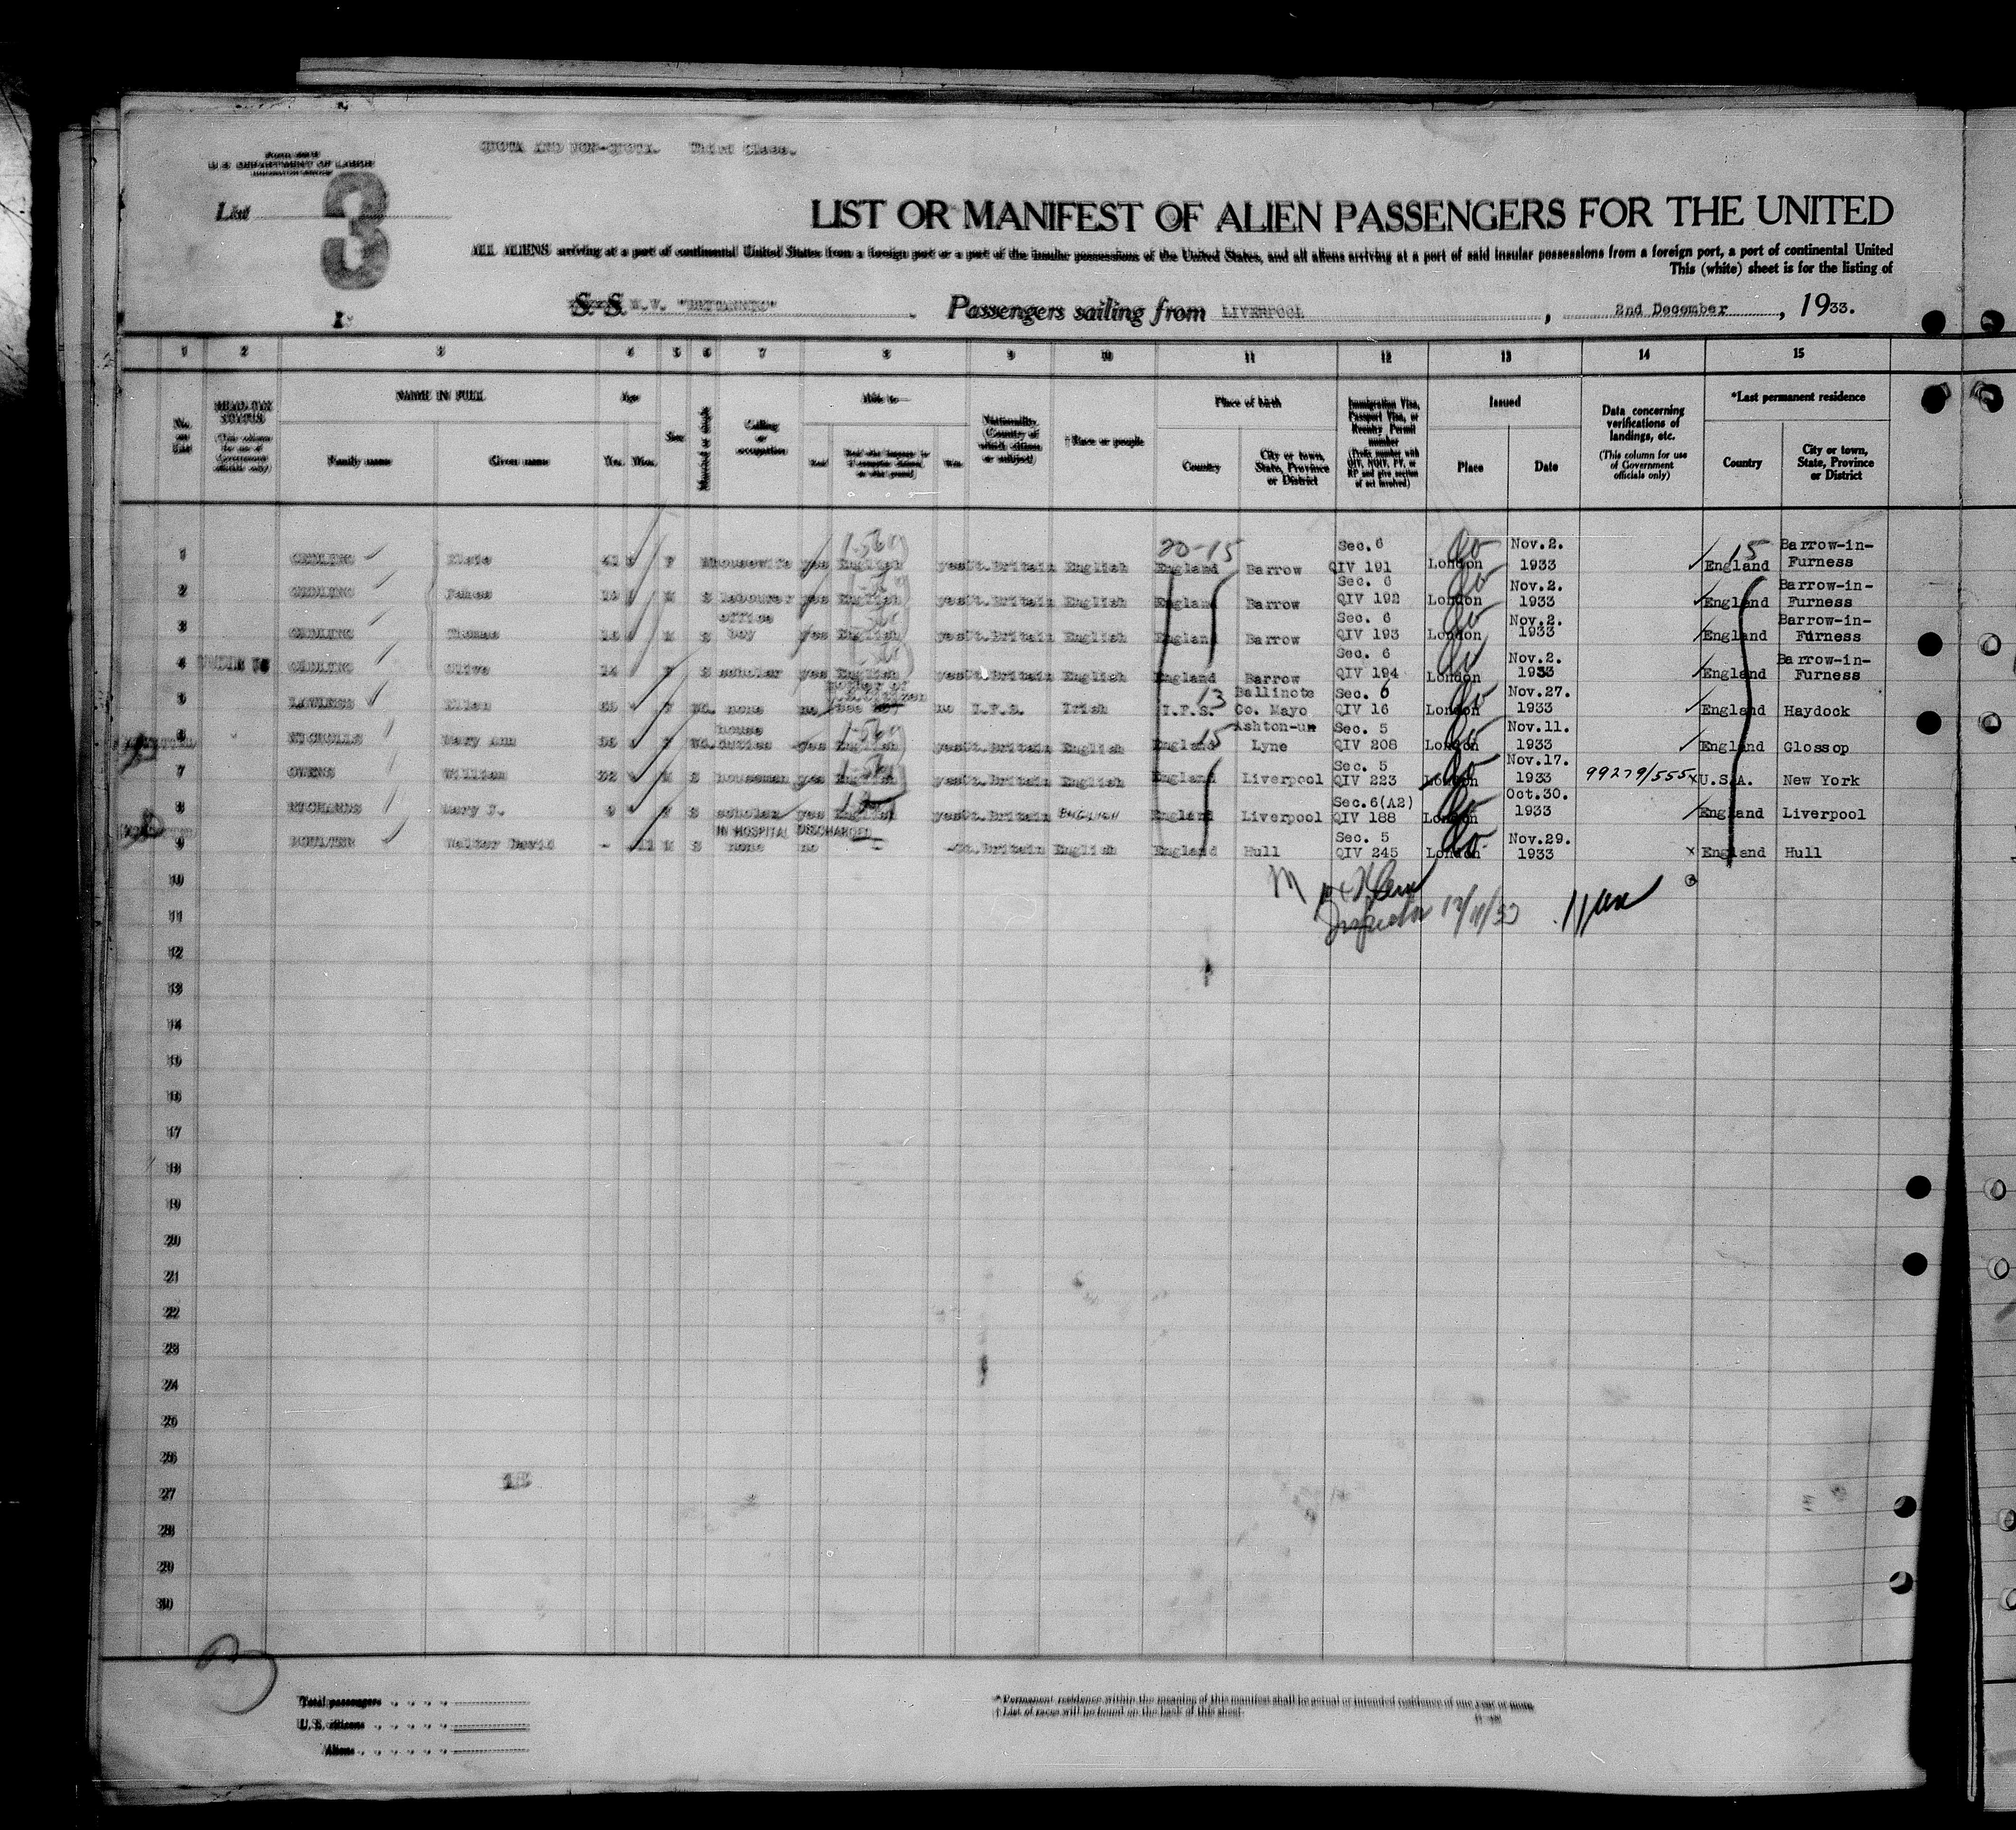 QUOTA AND NON-QUOTA. Third Class.
U. S. DEPARTMENT OF LABOR
List 3
LIST OR MANIFEST OF ALIEN PASSENGERS FOR THE UNITED
ALL ALIENS arriving at a port of continental United States from a foreign port or a port of the insular possessions of the United States, and all aliens arriving at a port of said insular possessions from a foreign port, a port of continental United
This (white) sheet is for the listing of
S. S. M.V. "BRITANNIC" Passengers sailing from LIVERPOOL, 2nd December, 1933.
1 2 3 4 5 6 7 8 9 10 11 12 13 14 15
No. on List
HEAD-TAX STATUS (This column for use of Government officials only)
NAME IN FULL Family name Given name
Age Yrs. Mos.
Sex
Married or single
Calling or occupation
Able to— Read Read what language Write
Nationality. (Country of which citizen or subject)
†Race or people
Place of birth Country City or town, State, Province or District
Immigration Visa, Passport Visa, or Reentry Permit number (Prefix number with QIV, NQIV, PV, or RP and give section of act involved)
Issued Place Date
Data concerning verifications of landings, etc. (This column for use of Government officials only)
*Last permanent residence Country City or town, State, Province or District
1 GEDLING Elsie 41 F M housewife yes English yes Gt.Britain English 20-15 England Barrow Sec.6 QIV 191 London Nov.2. 1933 15 England Barrow-in-Furness
2 GEDLING James 19 M S labourer yes English yes Gt.Britain English England Barrow Sec. 6 QIV 192 London Nov.2. 1933 England Barrow-in-Furness
3 GEDLING Thomas M S office boy yes English yes Gt.Britain English England Barrow Sec. 6 QIV 193 London Nov.2. 1933 England Barrow-in-Furness
4 UNDER 16 GEDLING Olive 14 F S scholar yes English yes Gt.Britain English England Barrow Sec. 6 QIV 194 London Nov.2. 1933 England Barrow-in-Furness
5 LAWLESS Ellen F Wd. none no no I.F.S. Irish 13 I.F.S. Ballinote Co. Mayo Sec. 6 QIV 16 London Nov.27. 1933 England Haydock
6 NICHOLLS Mary Ann F Wd. house duties yes English yes Gt.Britain English 15 England Ashton-un Lyne Sec. 5 QIV 208 London Nov.11. 1933 England Glossop
7 OWENS William 32 M S houseman yes English yes Gt.Britain English England Liverpool Sec. 5 QIV 223 London Nov.17. 1933 99279/555 x U.S.A. New York
8 RICHARDS Mary F. 9 F S scholar yes English yes Gt.Britain England Liverpool Sec.6(A2) QIV 188 London Oct.30. 1933 England Liverpool
IN HOSPITAL DISCHARGED
9 BOULTER Walter David - 11 M S none no - - Gt.Britain English England Hull Sec. 5 QIV 245 London Nov.29. 1933 x England Hull
10
Inspector
11
12
13
14
15
16
17
18
19
20
21
22
23
24
25
26
27
28
29
30
Total passengers
U. S. citizens
Aliens
*Permanent residence within the meaning of this manifest shall be actual or intended residence of one year or more.
†List of races will be found on the back of this sheet.